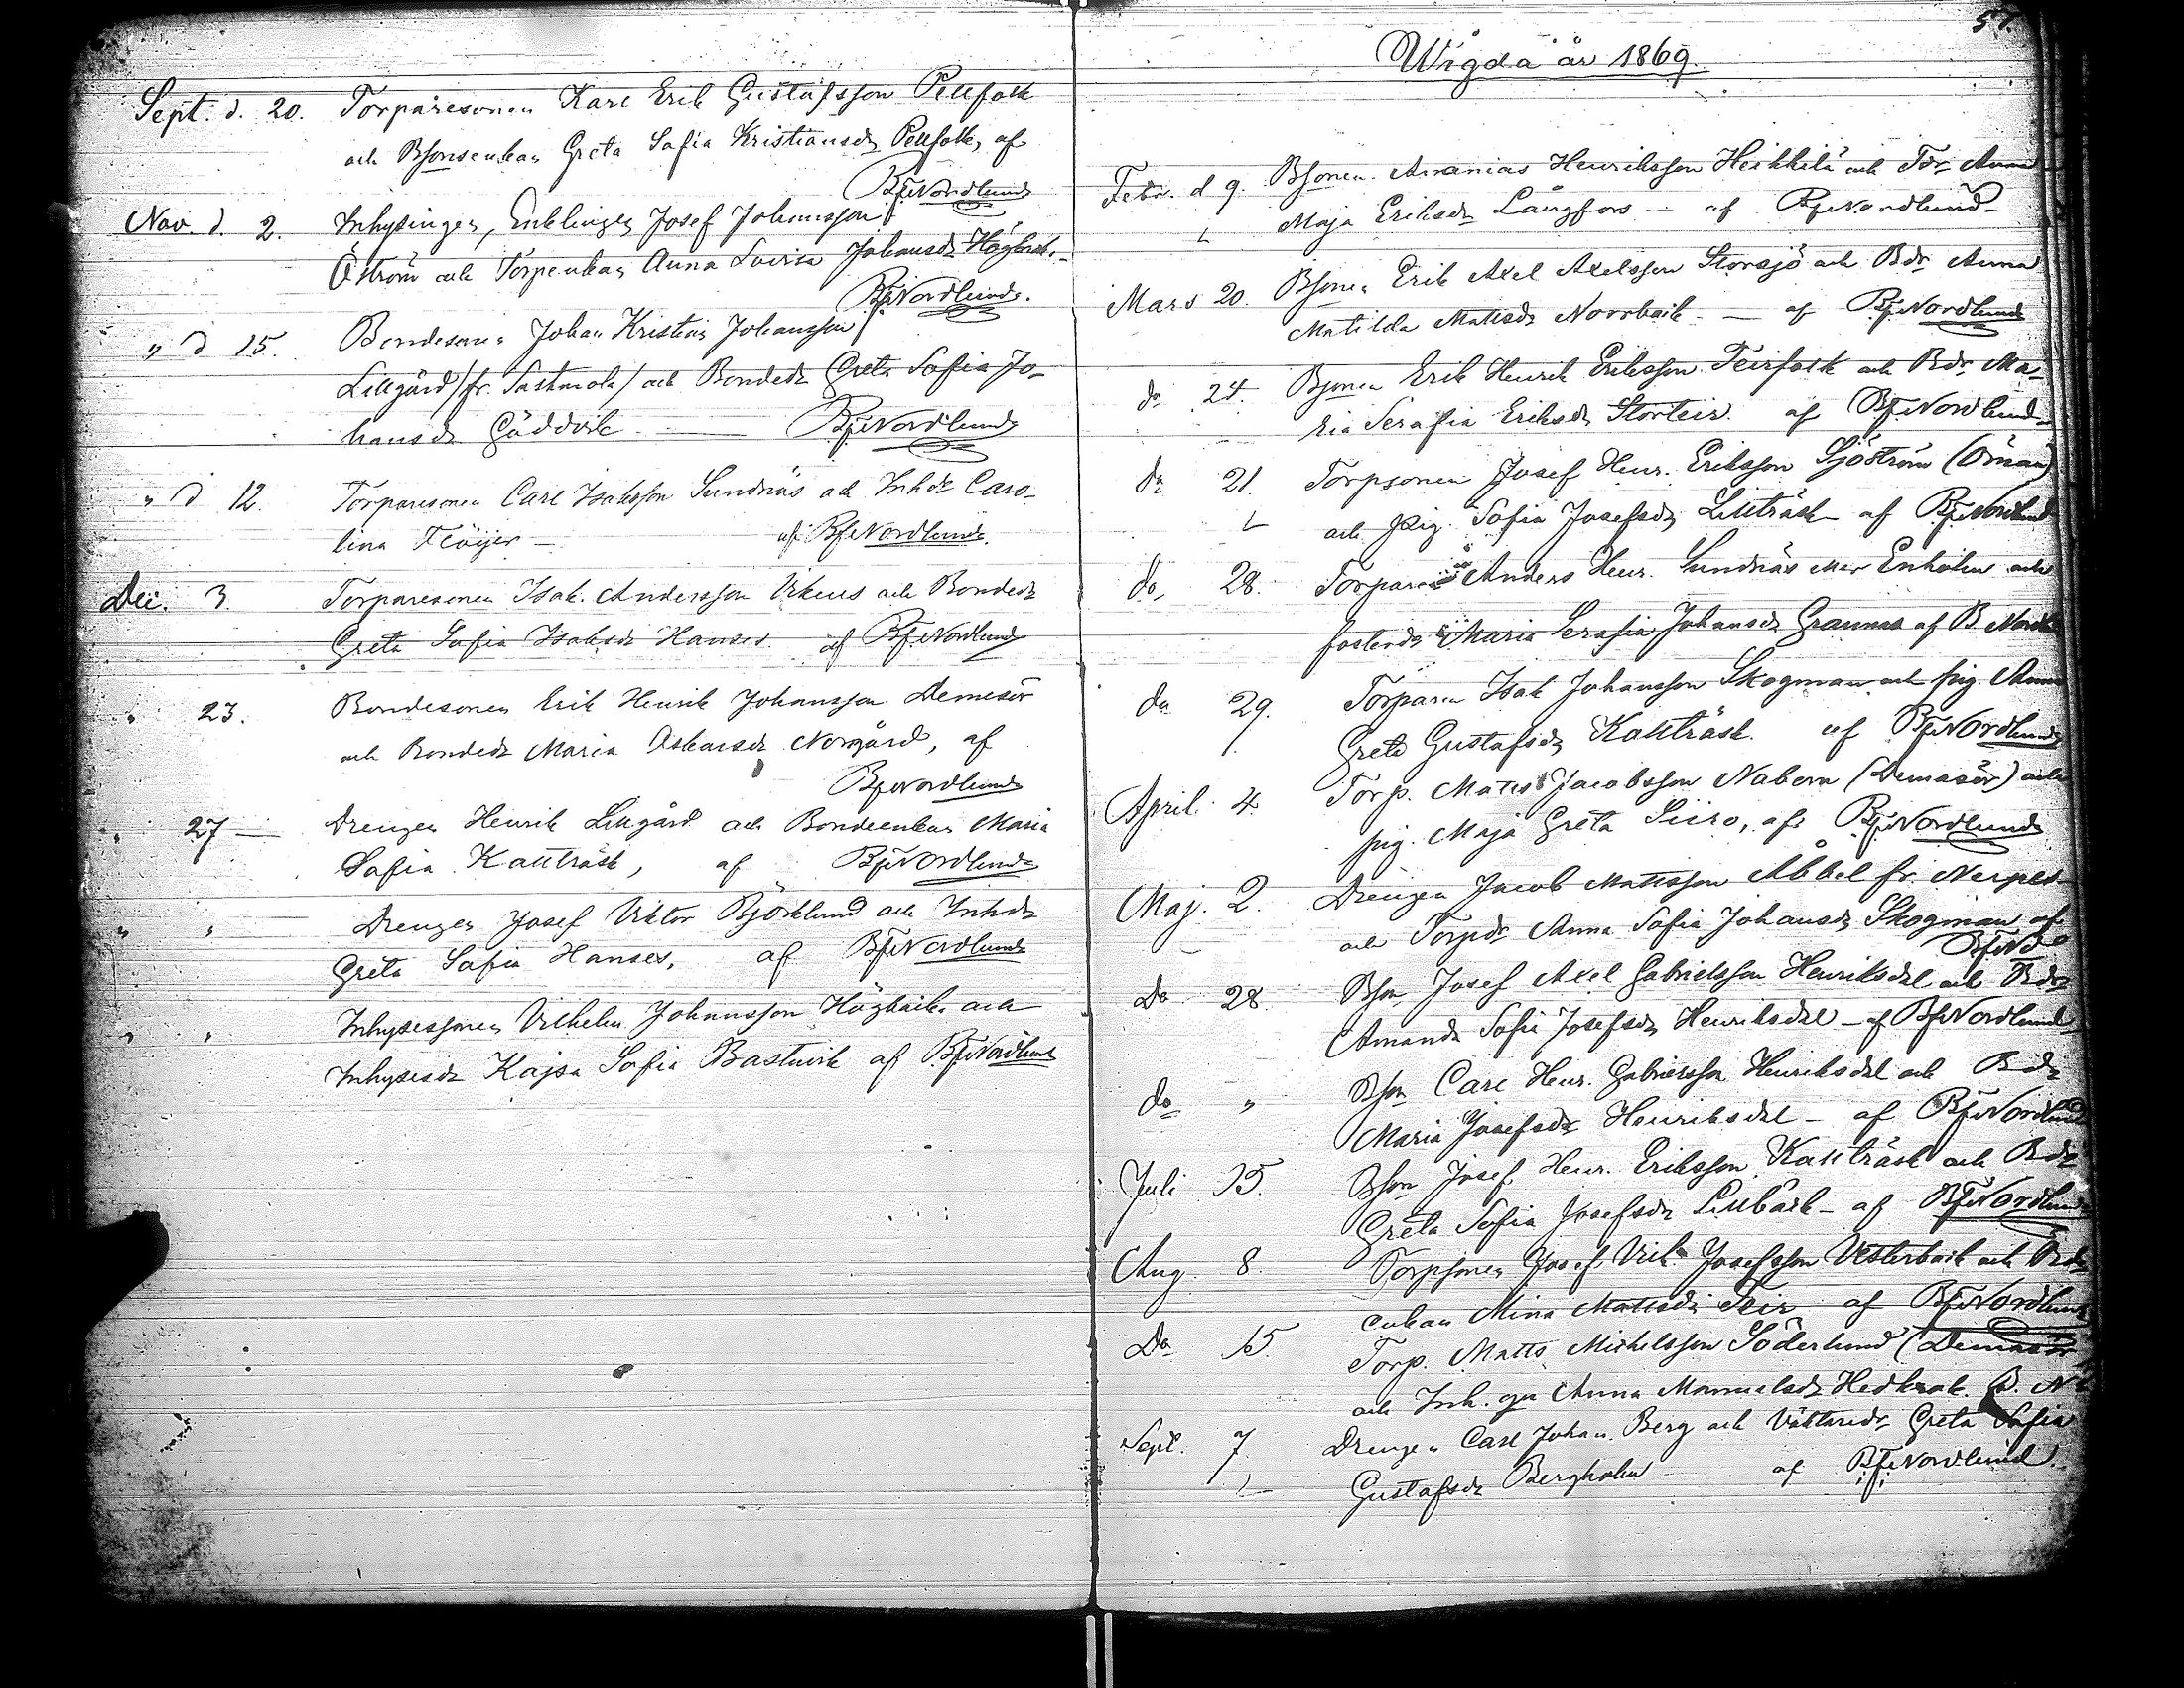 Sept. d. 20. Torparesonen Karl Erik Gustafsson Pellfolk
och Bsonsenkan Greta Sofia Kristiansdr Pellfolk, af
BfrNordlund
Nov. d. 2. Inhysingen, Enklingen Josef Johansson
Öström och Torpenkan Anna Lovisa Johansdr Högback.
BfrNordlund.
" d 15. Bondesonen Johan Kristian Johansson
Lillgård /fr. Sastmola/ och Bondedr Greta Sofia Jo-
hansdr Gäddvik — BfrNordlund
" d 12. Torparesonen Carl Isaksson Sundnäs och Inhdr Caro-
lina Flöijer — af BfrNordlund.
Dec. 3. Torparesonen Isak Andersson Vikeus och Bondedr
Greta Sofia Isaksdr Hanses. af BfrNordlund
" 23. Bondesonen Erik Henrik Johansson Demesör
och Bondedr Maria Norrgård, af
BfrNordlund
" 27 — Drengen Henrik Lillgård och Bondeenkan Maria
Sofia Kallträsk, af BfrNordlund
" " Drengen Josef Viktor Björklund och Inhdr
Greta Sofia Hanses, af BfrNordlund
" " Inhysessonen Vilhelm Johansson Högback och
Inhysesdr Kajsa Sofia Bastuvik af BfrNordlund
57.
Wigda år 1869.
Febr. d 9. Bsonen Ananias Henriksson Heikkilä och Tdr Anna
Maja Eriksdr Långfors — af BfrNordlund
Mars 20. Bsonen Erik Axel Axelsson Storsjö och Bdr Anna
Matilda Mattsdr Norrback — af BfrNordlund
do 24. Bsonen Erik Henrik Eriksson Teirfolk och Bdr Ma-
ria Serafia Eriksdr Storteir. af BfrNordlund
do 21. Torpsonen Josef Henr. Eriksson Sjöström (Öman)
och pig. Sofia Josefsdr Lillträsk af BfrNordlund
do 28. Anders Henr. Sundnäs Enholm och
fosterdr Maria Serafia Johansdr Grannas af B.
do 29. Torparen Isak Johansson Skogman och pig. Anna
Greta Gustafsdr Kallträsk. af BfrNordlund
April. 4. Torp. Matts Jacobsson Nabern (Demasör) och
pig. Maja Greta Siiro, af BfrNordlund
Maj. 2. Drengen Jacob Mattsson Åbbel fr. Nerpes
och Torpdr Anna Sofia Johansdr Skogman af
BfrNd
Do 28. Bson Josef Axel Gabrielsson Henriksdal och Bdr
Amanda Sofia Josefsdr Henriksdal — af BfrNordlund
do " Bson Carl Henr. Gabrielsson Henriksdal och Bdr
Maria Josefsdr Henriksdal — af BfrNordlund
Juli 15. Bson Josef Henr. Eriksson Kallträsk och Bdr
Greta Sofia Josefsdr Lillbäck — af BfrNordlund
Aug. 8. Torpsonen Josef Vilh. Josefsson Vesterback och Bds
enkan Mina Mattsdr Teir af BfrNordlund
Do 15 Torp. Matts Michelsson Söderlund (Demasör
och Inh. Anna Manuelsdr B. N
Sept. 7. Drengen Carl Johan Berg och Väktaredr Greta Sofia
Gustafsdr Bergholm af BfrNordlund.